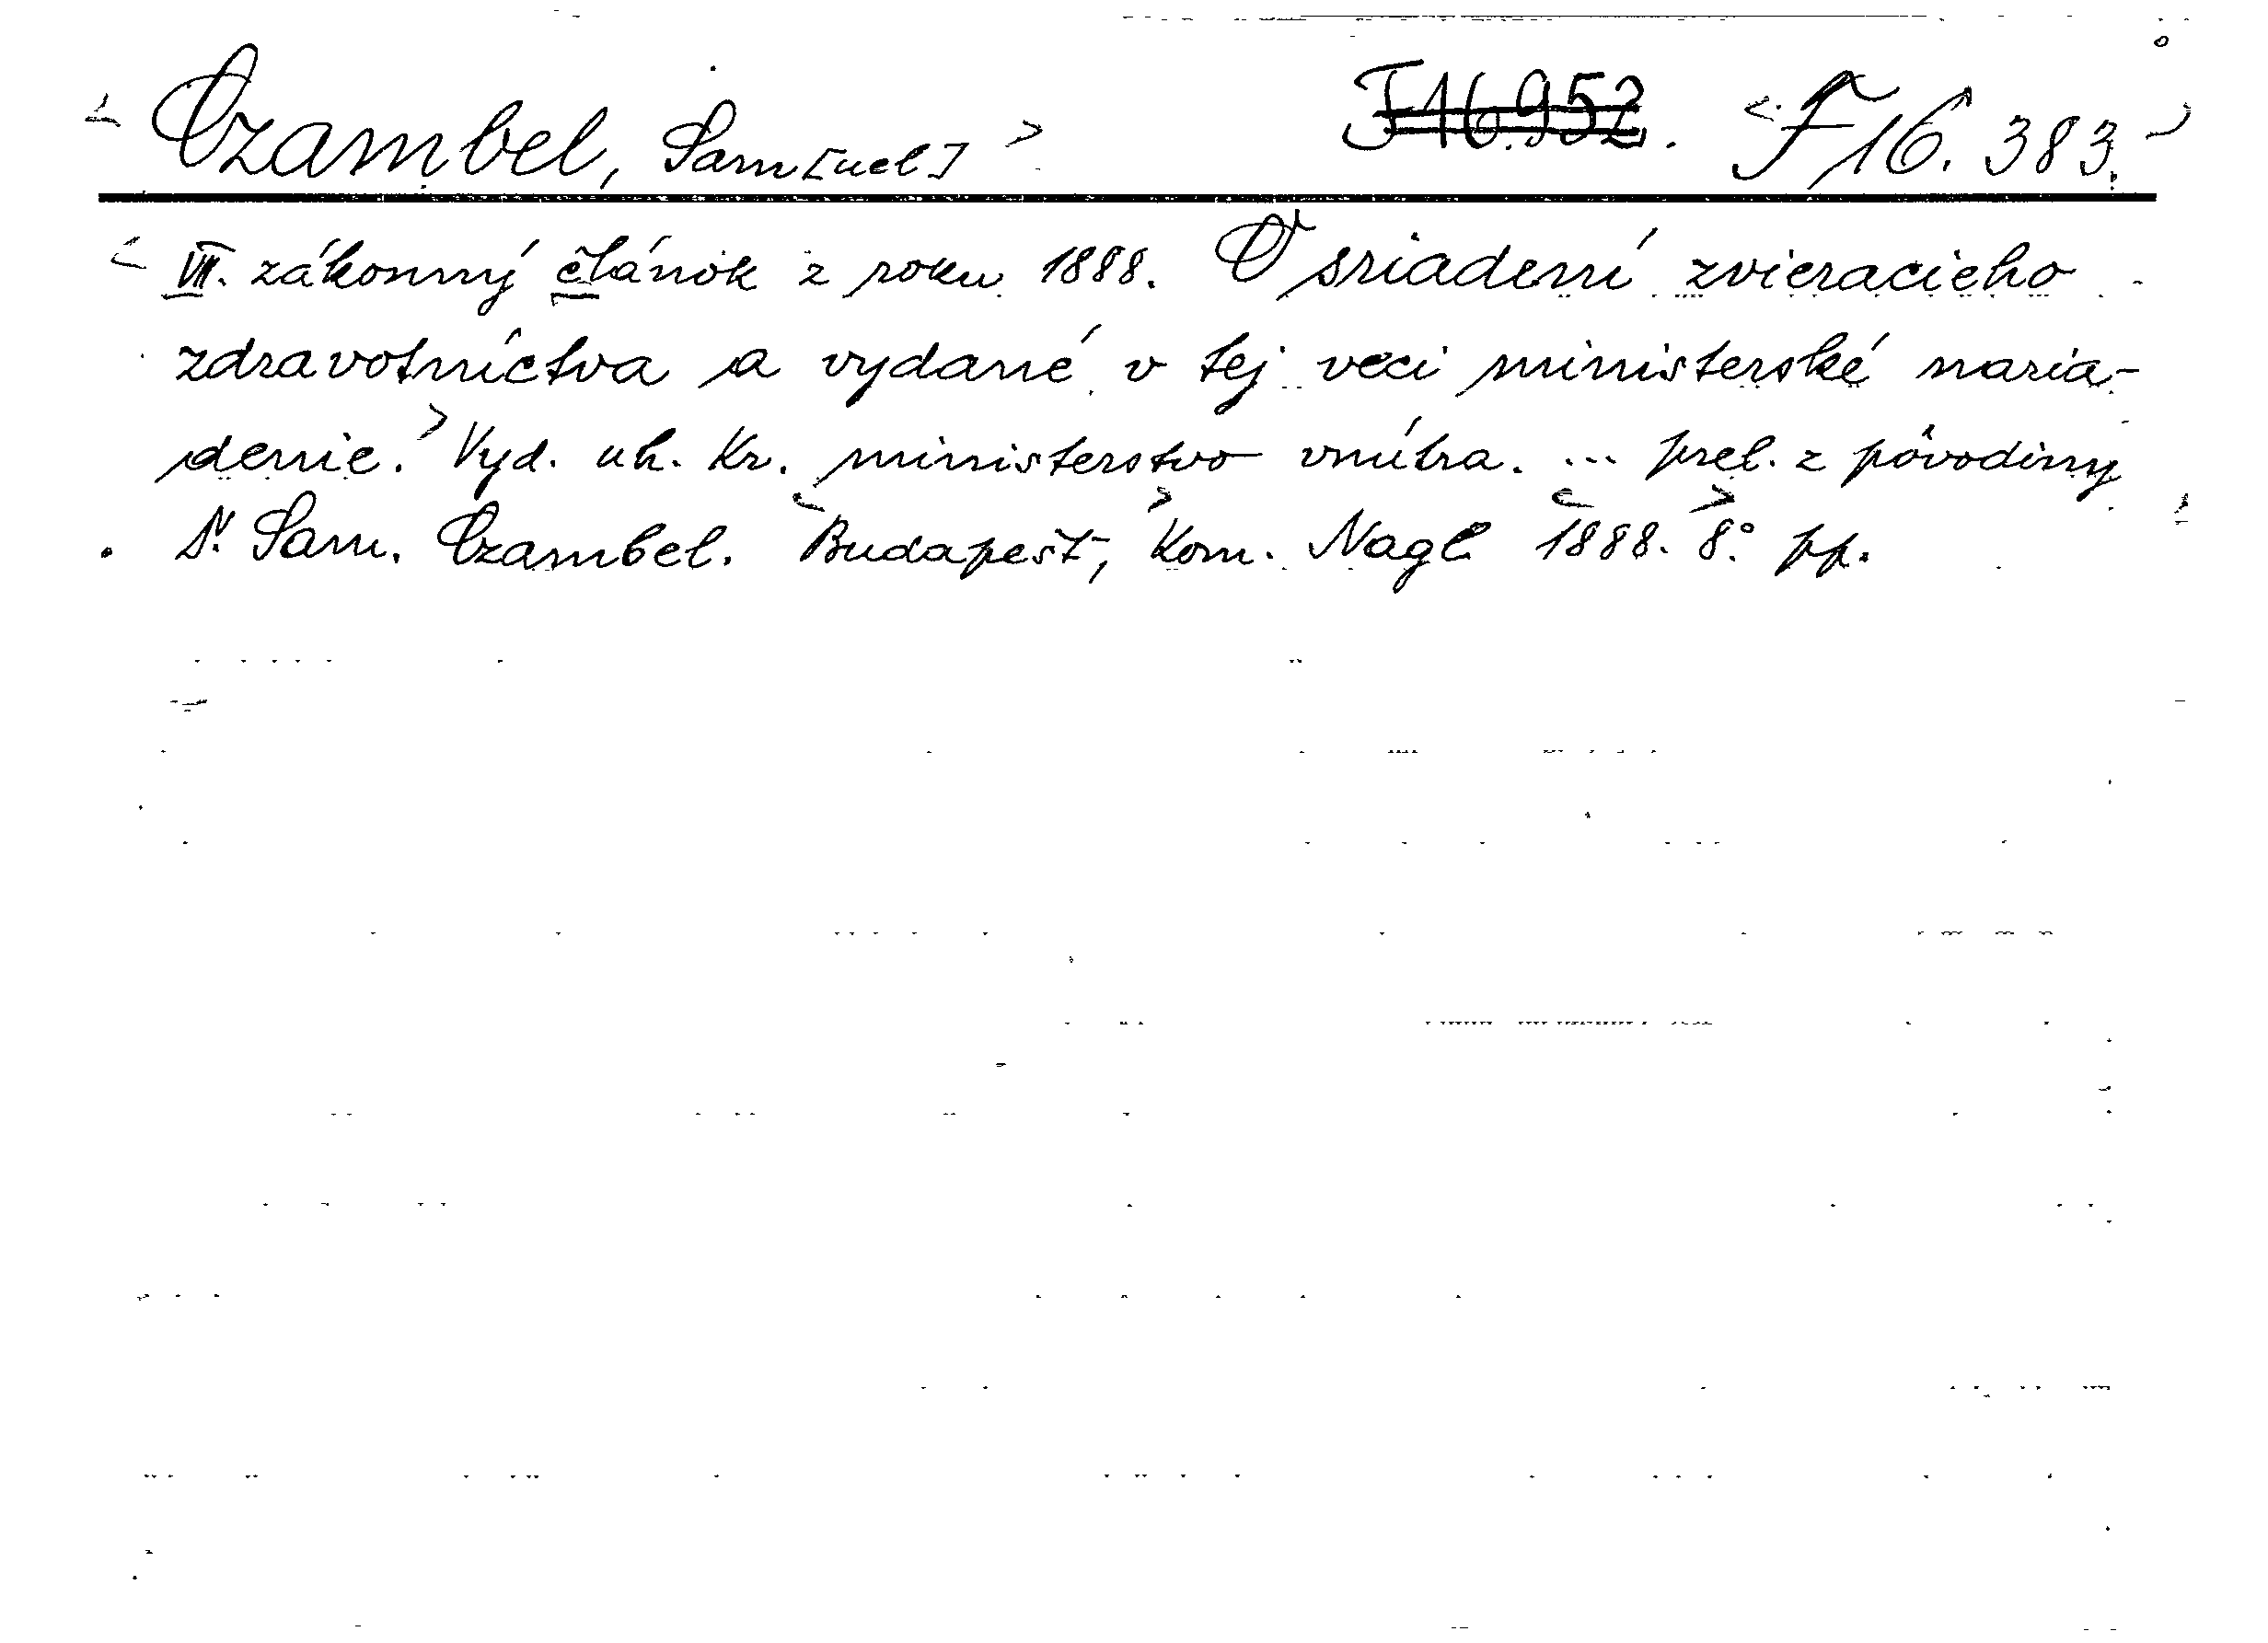 < Czambel, Sam[uel] > F 16.952. < F 16.383. >
< VII. zákonný článok z roku 1888. O sriadení zvieracieho
zdravotníctva a vydané v tej veci ministerské naria-
denie. > Vyd. uh. kr. ministerstvo vnútra. ... prel. z pôvodiny
Dr. Sam. Czambel. < Budapešť, > Kom. Nagl < 1888. > 8° pp.